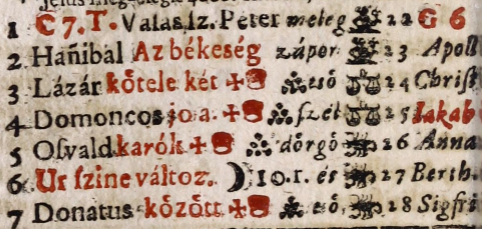 1 C 7. T. Valas ſz. Peter meleg 22 G 6
2 Hañibal Az békeség zápor 23 Apoll
3 Lázár kötele két eső 24 Chriſt
4 Domoncos jo a. ſzél 25 Iakab
5 Oſvald karók dörgö 26 Anna
6 Ur ſzine változ. 10. r. és 27 Berth.
7 Donatus között eö, 28 Sigfri